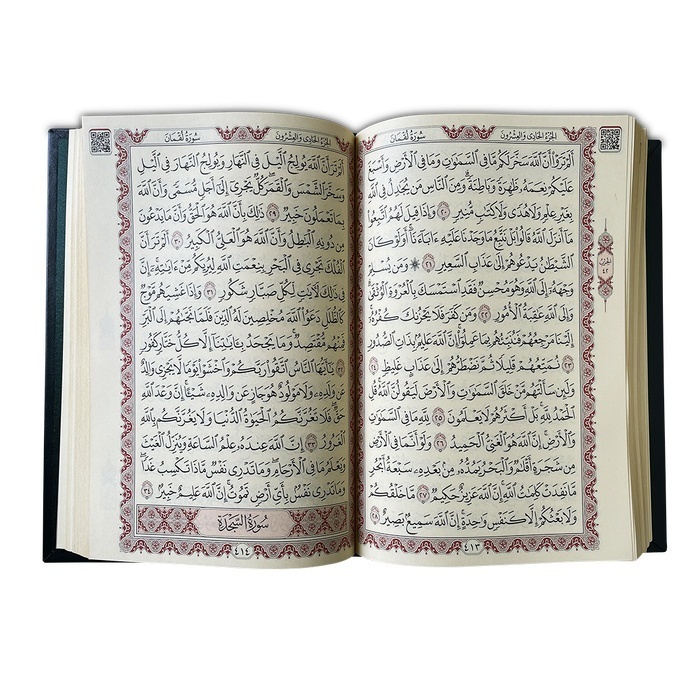 الجُزْءُ الحَادِي وَالعِشْرُونَ
سُورَةُ لُقْمَانَ
أَلَمْ تَرَوْا۟ أَنَّ ٱللَّهَ سَخَّرَ لَكُم مَّا فِى ٱلسَّمَٰوَٰتِ وَمَا فِى ٱلْأَرْضِ وَأَسْبَغَ
عَلَيْكُمْ نِعَمَهُۥ ظَٰهِرَةً وَبَاطِنَةً ۗ وَمِنَ ٱلنَّاسِ مَن يُجَٰدِلُ فِى ٱللَّهِ
بِغَيْرِ عِلْمٍ وَلَا هُدًى وَلَا كِتَٰبٍ مُّنِيرٍ ٢٠ وَإِذَا قِيلَ لَهُمُ ٱتَّبِعُوا۟
مَآ أَنزَلَ ٱللَّهُ قَالُوا۟ بَلْ نَتَّبِعُ مَا وَجَدْنَا عَلَيْهِ ءَابَآءَنَآ ۚ أَوَلَوْ كَانَ
ٱلشَّيْطَٰنُ يَدْعُوهُمْ إِلَىٰ عَذَابِ ٱلسَّعِيرِ ٢١ ۞ وَمَن يُسْلِمْ
وَجْهَهُۥٓ إِلَى ٱللَّهِ وَهُوَ مُحْسِنٌ فَقَدِ ٱسْتَمْسَكَ بِٱلْعُرْوَةِ ٱلْوُثْقَىٰ ۗ
وَإِلَى ٱللَّهِ عَٰقِبَةُ ٱلْأُمُورِ ٢٢ وَمَن كَفَرَ فَلَا يَحْزُنكَ كُفْرُهُۥٓ ۚ
إِلَيْنَا مَرْجِعُهُمْ فَنُنَبِّئُهُم بِمَا عَمِلُوٓا۟ ۚ إِنَّ ٱللَّهَ عَلِيمٌۢ بِذَاتِ ٱلصُّدُورِ
٢٣ نُمَتِّعُهُمْ قَلِيلًا ثُمَّ نَضْطَرُّهُمْ إِلَىٰ عَذَابٍ غَلِيظٍ ٢٤
وَلَئِن سَأَلْتَهُم مَّنْ خَلَقَ ٱلسَّمَٰوَٰتِ وَٱلْأَرْضَ لَيَقُولُنَّ ٱللَّهُ ۚ قُلِ
ٱلْحَمْدُ لِلَّهِ ۚ بَلْ أَكْثَرُهُمْ لَا يَعْلَمُونَ ٢٥ لِلَّهِ مَا فِى ٱلسَّمَٰوَٰتِ
وَٱلْأَرْضِ ۚ إِنَّ ٱللَّهَ هُوَ ٱلْغَنِىُّ ٱلْحَمِيدُ ٢٦ وَلَوْ أَنَّمَا فِى ٱلْأَرْضِ
مِن شَجَرَةٍ أَقْلَٰمٌ وَٱلْبَحْرُ يَمُدُّهُۥ مِنۢ بَعْدِهِۦ سَبْعَةُ أَبْحُرٍ
مَّا نَفِدَتْ كَلِمَٰتُ ٱللَّهِ ۗ إِنَّ ٱللَّهَ عَزِيزٌ حَكِيمٌ ٢٧ مَّا خَلْقُكُمْ
وَلَا بَعْثُكُمْ إِلَّا كَنَفْسٍ وَٰحِدَةٍ ۗ إِنَّ ٱللَّهَ سَمِيعٌۢ بَصِيرٌ ٢٨
٤١٣
الحزب
٤٢
الجُزْءُ الحَادِي وَالعِشْرُونَ
سُورَةُ لُقْمَانَ
أَلَمْ تَرَ أَنَّ ٱللَّهَ يُولِجُ ٱلَّيْلَ فِى ٱلنَّهَارِ وَيُولِجُ ٱلنَّهَارَ فِى ٱلَّيْلِ
وَسَخَّرَ ٱلشَّمْسَ وَٱلْقَمَرَ كُلٌّ يَجْرِىٓ إِلَىٰٓ أَجَلٍ مُّسَمًّى وَأَنَّ ٱللَّهَ
بِمَا تَعْمَلُونَ خَبِيرٌ ٢٩ ذَٰلِكَ بِأَنَّ ٱللَّهَ هُوَ ٱلْحَقُّ وَأَنَّ مَا يَدْعُونَ
مِن دُونِهِ ٱلْبَٰطِلُ وَأَنَّ ٱللَّهَ هُوَ ٱلْعَلِىُّ ٱلْكَبِيرُ ٣٠ أَلَمْ تَرَ أَنَّ
ٱلْفُلْكَ تَجْرِى فِى ٱلْبَحْرِ بِنِعْمَتِ ٱللَّهِ لِيُرِيَكُم مِّنْ ءَايَٰتِهِۦٓ ۚ إِنَّ
فِى ذَٰلِكَ لَءَايَٰتٍ لِّكُلِّ صَبَّارٍ شَكُورٍ ٣١ وَإِذَا غَشِيَهُم مَّوْجٌ
كَٱلظُّلَلِ دَعَوُا۟ ٱللَّهَ مُخْلِصِينَ لَهُ ٱلدِّينَ فَلَمَّا نَجَّىٰهُمْ إِلَى ٱلْبَرِّ
فَمِنْهُم مُّقْتَصِدٌ ۚ وَمَا يَجْحَدُ بِـَٔايَٰتِنَآ إِلَّا كُلُّ خَتَّارٍ كَفُورٍ
٣٢ يَٰٓأَيُّهَا ٱلنَّاسُ ٱتَّقُوا۟ رَبَّكُمْ وَٱخْشَوْا۟ يَوْمًا لَّا يَجْزِى وَالِدٌ
عَن وَلَدِهِۦ وَلَا مَوْلُودٌ هُوَ جَازٍ عَن وَالِدِهِۦ شَيْـًٔا ۚ إِنَّ وَعْدَ ٱللَّهِ
حَقٌّ ۖ فَلَا تَغُرَّنَّكُمُ ٱلْحَيَوٰةُ ٱلدُّنْيَا وَلَا يَغُرَّنَّكُم بِٱللَّهِ
ٱلْغَرُورُ ٣٣ إِنَّ ٱللَّهَ عِندَهُۥ عِلْمُ ٱلسَّاعَةِ وَيُنَزِّلُ ٱلْغَيْثَ
وَيَعْلَمُ مَا فِى ٱلْأَرْحَامِ ۖ وَمَا تَدْرِى نَفْسٌ مَّاذَا تَكْسِبُ غَدًا ۖ
وَمَا تَدْرِى نَفْسٌۢ بِأَىِّ أَرْضٍ تَمُوتُ ۚ إِنَّ ٱللَّهَ عَلِيمٌ خَبِيرٌۢ ٣٤
سُورَةُ السَّجْدَةِ
٤١٤